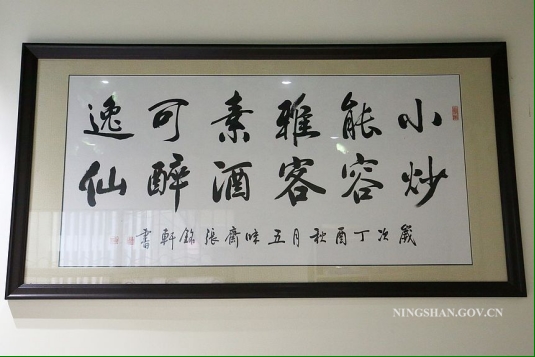 小炒
能容
雅客
素酒
可醉
逸仙
歲次丁酉秋月五味齋張銘軒書
NINGSHAN.GOV.CN